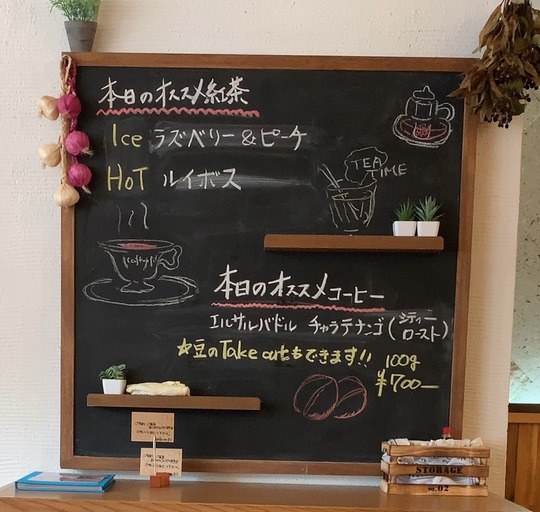 本日のオススメ紅茶
Ice ラズベリー&ピーチ
HoT ルイボス
TEA
TIME
本日のオススメコーヒー
エルサルバドル チャラテナンゴ(シティーロースト)
☆豆のTake outもできます!! 100g
¥700—
STORAGE
NO.02